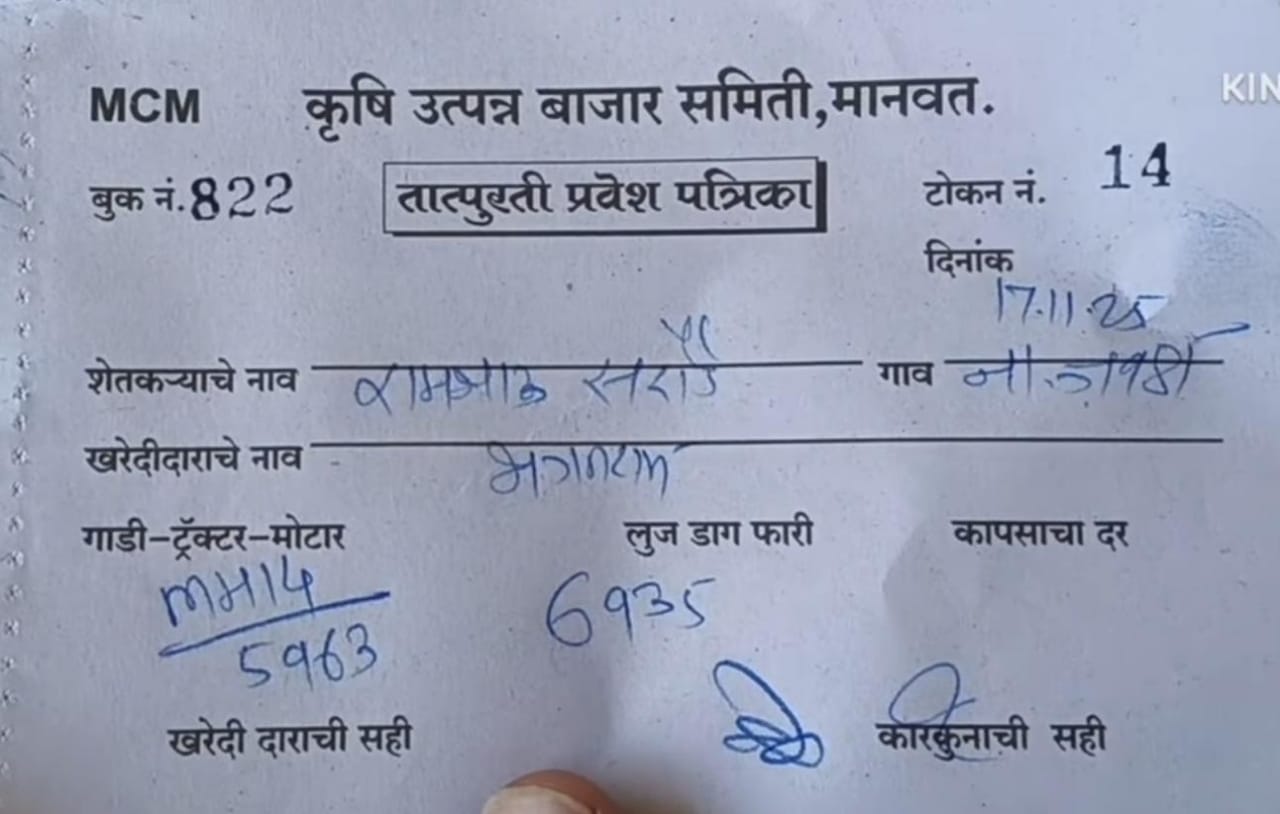 MCM कृषि उत्पन्न बाजार समिती,मानवत. KIN
बुक नं.822 तात्पुरती प्रवेश पत्रिका टोकन नं. 14
दिनांक
17.11.25
शेतकऱ्याचे नाव रामभाऊ गाव
खरेदीदाराचे नाव
गाडी-ट्रॅक्टर-मोटार लुज डाग फारी कापसाचा दर
6935
5963
खरेदी दाराची सही कारकुनाची सही